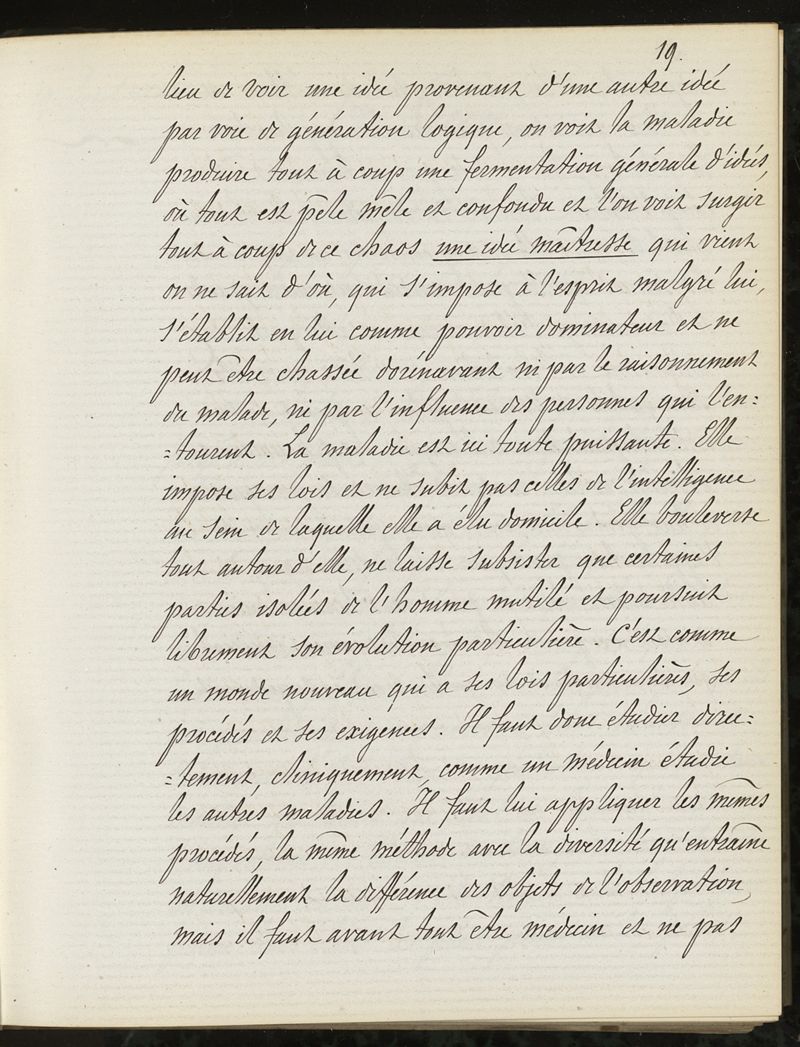 19.
lieu de voir une idée provenant d'une autre idée
par voie de génération logique, on voit la maladie
produire tout à coup une fermentation générale d'idées,
où tout est pêle mêle et confondu et l'on voit surgir
tout à coup de ce chaos une idée maîtresse qui vient
on ne sait d'où, qui s'impose à l'esprit malgré lui,
s'établit en lui comme pouvoir dominateur et ne
peut être chassée dorénavant ni par le raisonnement
du malade, ni par l'influence des personnes qui l'en=
=tourent. La maladie est ici toute puissante. Elle
impose ses lois et ne subit pas celles de l'intelligence
au sein de laquelle elle a élu domicile. Elle bouleverse
tout autour d'elle, ne laisse subsister que certaines
parties isolées de l'homme mutilé et poursuit
librement son évolution particulière. C'est comme
un monde nouveau qui a ses lois particulières, ses
procédés et ses exigences. Il faut donc étudier direc=
=tement, cliniquement, comme un médecin étudie
les autres maladies. Il faut lui appliquer les mêmes
procédés, la même méthode avec la diversité qu'entraîne
naturellement la différence des objets de l'observation,
mais il faut avant tout être médecin et ne pas